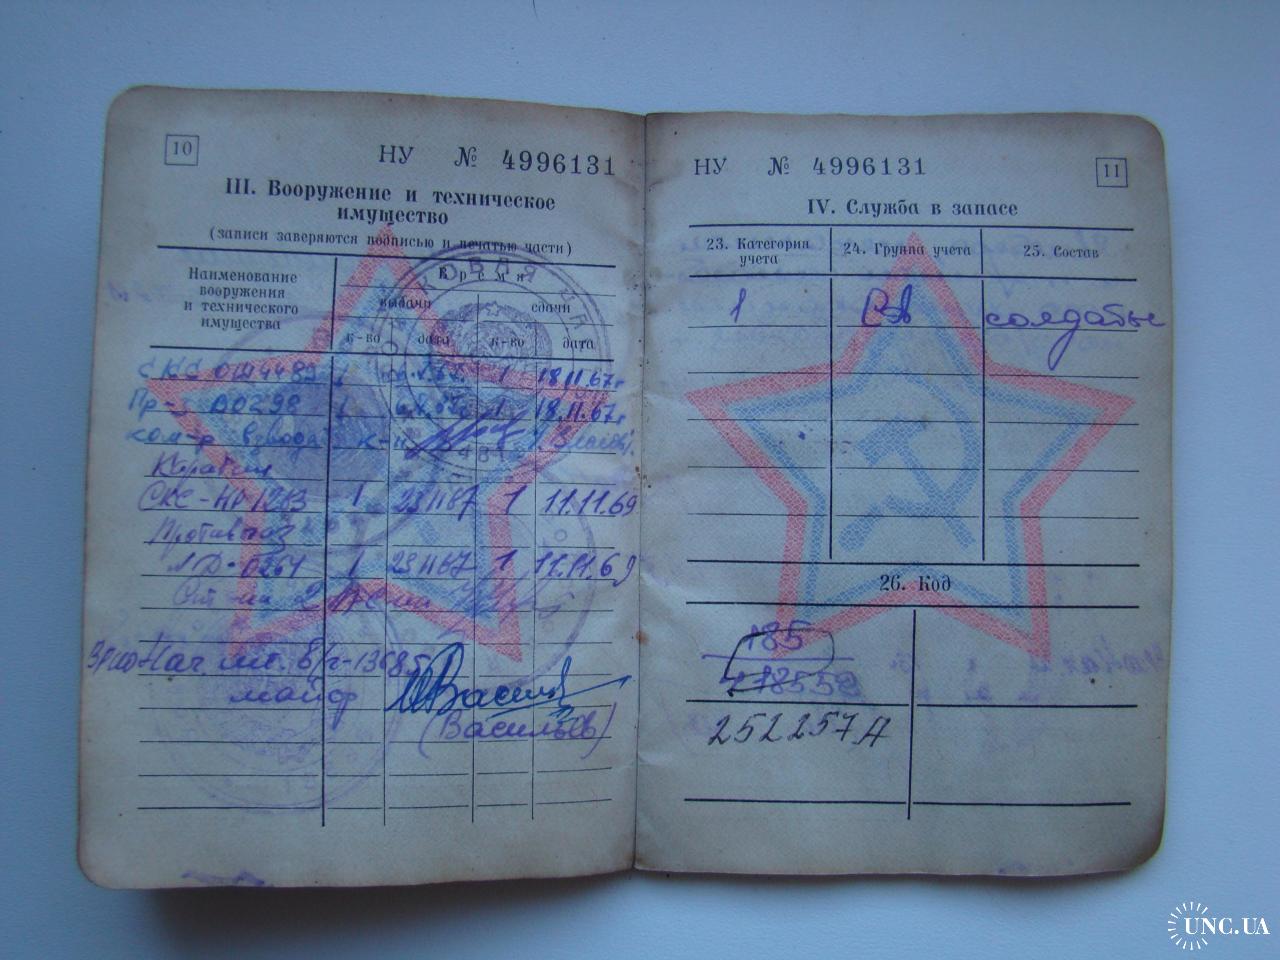 10
НУ № 4996131
III. Вооружение и техническое
имущество
(записи заверяются подписью и печатью части)
Наименование
вооружения
и технического
имущества
Время
выдачи
сдачи
к-во
дата
к-во
дата
СКС 1 1 18.11.67г
Пр- 00298 1 1 18.11.67г
ком-р взвода к-н
Карабин
СКС-НР 1213 1 231167 1 11.11.69
Противогаз
1 231167 1 11.11.69
ВРИО Нач. шт. в/ч-13685
майор
(Васильев)
НУ № 4996131
11
IV. Служба в запасе
23. Категория
учета
24. Группа учета
25. Состав
1
СА
солдаты
26. Код
185
252257А
UNC.UA